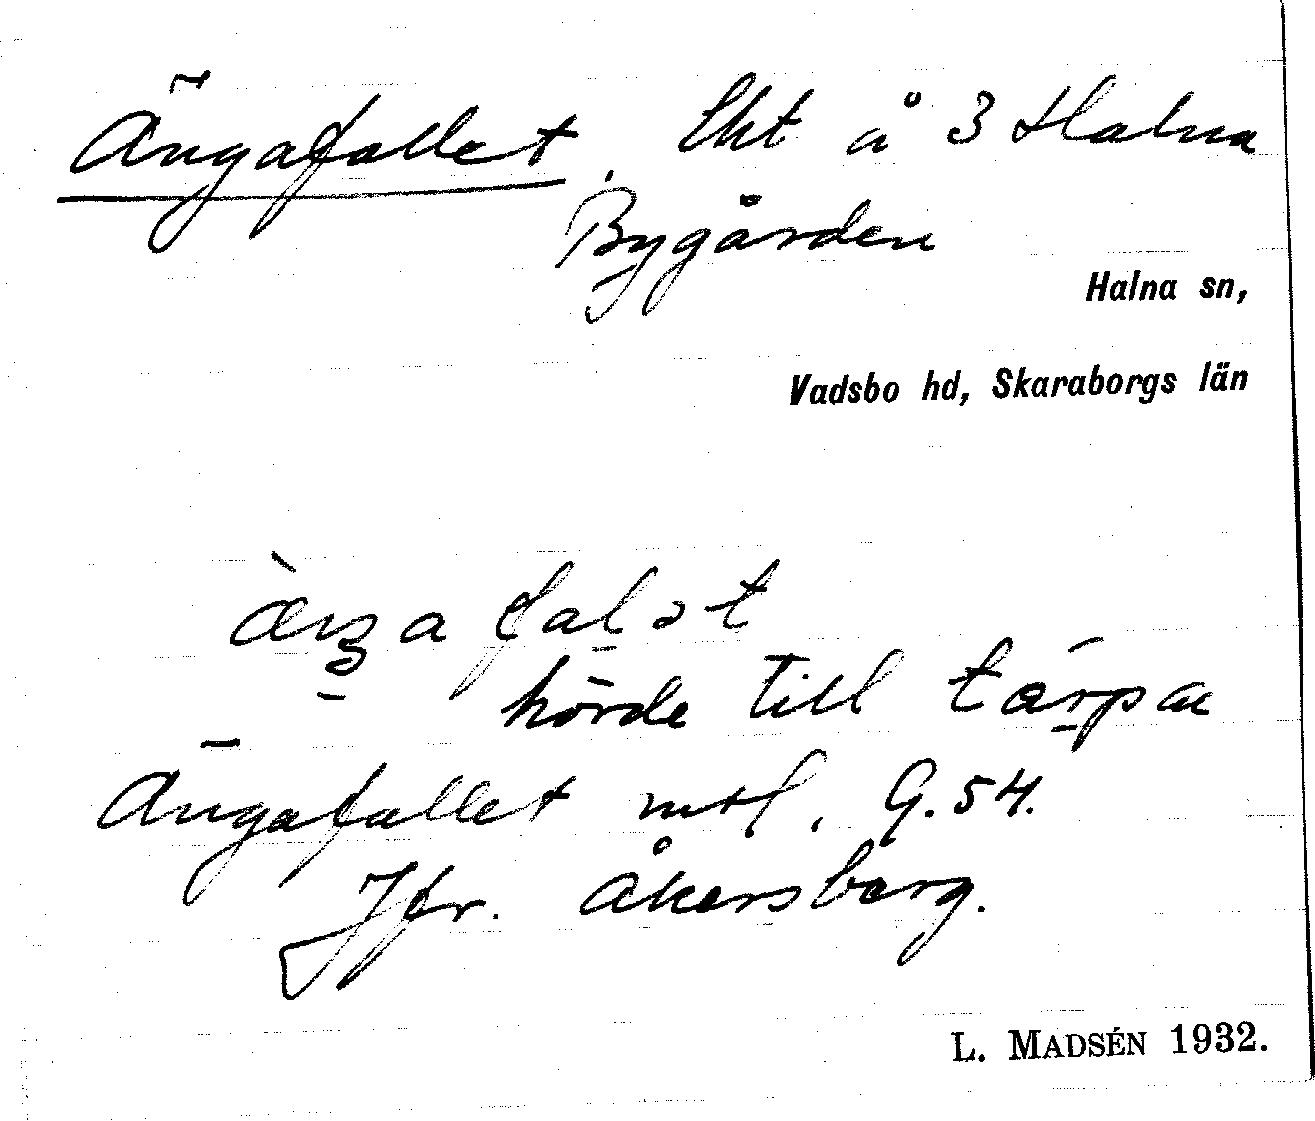 Ängafallet, lht å 3 Halna
Bygården
Halna sn,
Vadsbo hd, Skaraborgs län
hörde till
Ängafallet mtl. G.54.
Jfr. Åkersberg.
L. MADSÉN 1932.